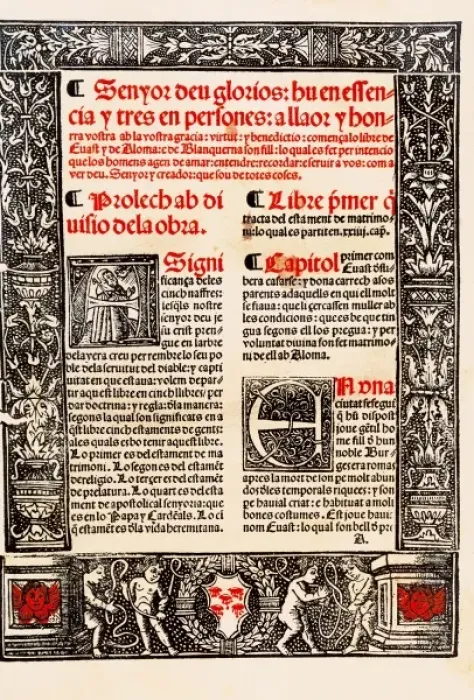 ¶ Senyor deu glorios: hu en essen-
cia y tres en persones: a llaor y hon-
rra vostra ab la vostra gracia: virtut: y benedictio: comença lo libre de
Euast y de Aloma: e de Blanquerna son fill: lo qual es fet per intencio
que los homens agen de amar: entendre: recordar: e seruir a vos: com a
ver deu. Senyor y creador: que sou de totes coses.
¶ Prolech ab di
uisio dela obra.
Signi
ficança deles
cinch naffres:
lesq̃ls nostre
senyor deu je
su crist pren-
gue en larbre
dela vera creu per rembre lo seu po
ble dela seruitut del diable: y capti
uitat en que estaua: volem depar-
tir aquest libre en cinch llibres/ per
dar doctrina: y regla: dla manera:
segons la qual son significats en a
q̃st libre cinch estaments de gents:
als quals es bo tenir aquest libre.
Lo primer es del estament de ma
trimoni. Lo segon es del estamẽt
de religio. Lo terçer es del estamẽt
de prelatura. Lo quart es del esta
ment de apostolical senyoria: que
es en lo Papa y Cardẽals. Lo cĩ
q̃ estamẽt es dla vida heremitana.
¶ Libre p̃mer q̃
tracta del estament de matrimo-
ni: lo qual es partit en .xxiiij. cap.
¶ Capitol primer com
Euast d̃sli
bera casarse: y dona carrech a sos
parents adaquells en qui ell molt
se fiaua: que li cercassen muller ab
les condicions: que es be que tin
gua segons ell los pregua: y per
voluntat diuina fon fet matrimo-
ni de ell ab Aloma.
En vna
ciutat se segui
q̃ hũ dispost
joue gẽtil ho
me fill d̃ hun
noble Bur-
ges era romas
apres la mort de son pe molt abun
dos d̃les temporals riquees: y son
pe hauial criat: e habituat a molt
bones costumes. Est joue hauí
nom Euast: lo qual fon bell d̃ p̃e
A.